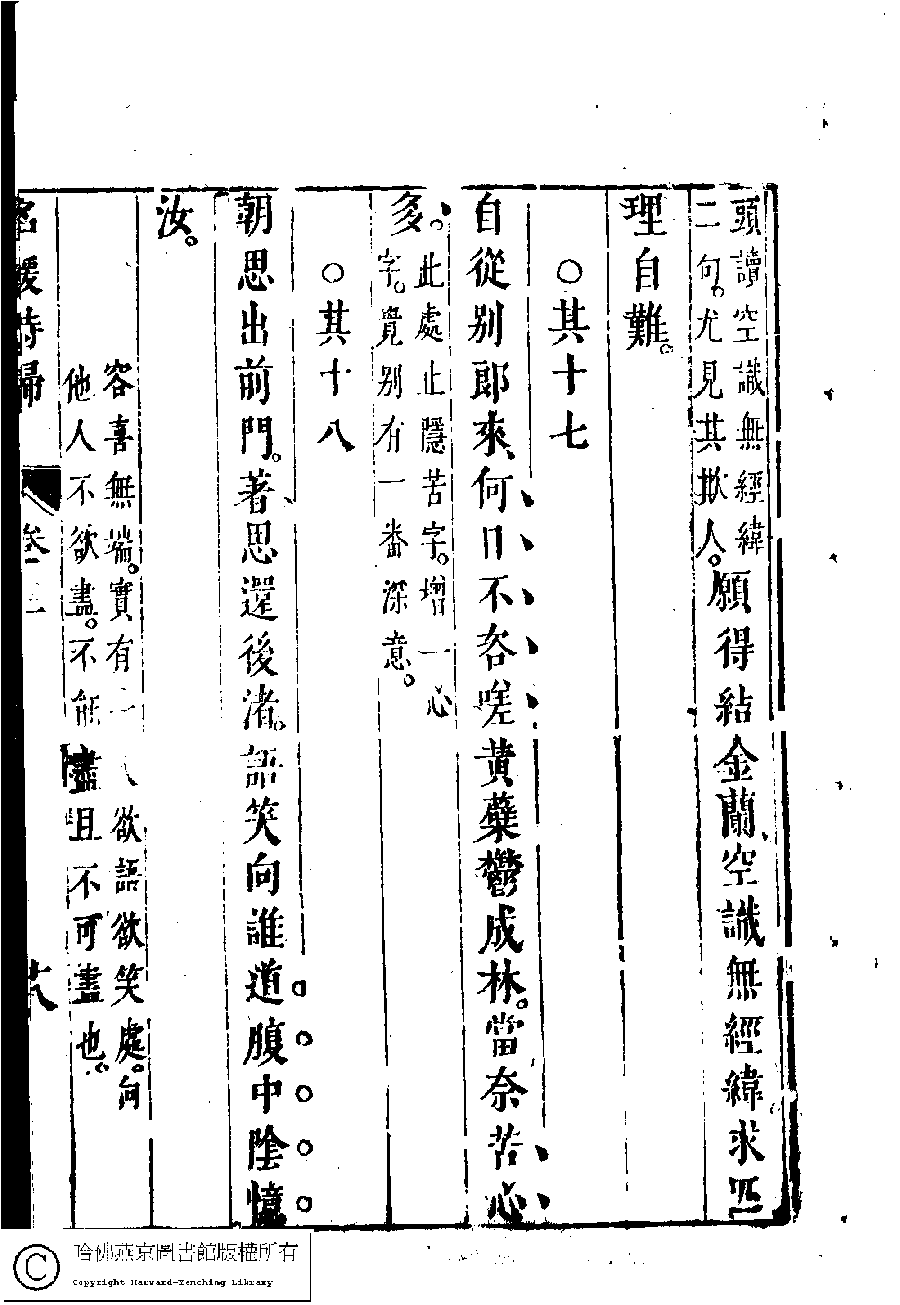 頭讀空識無經緯
二句。尤見其欺人。
願得結金蘭、空識無經緯求匹
理自難。
○其十七
自從别郎來、何日不咨嗟黄蘗鬱成林。當奈苦心
多。
此處止隱苦字。增一心
字。覺别有一番深意。
○其十八
朝思出前門。著思還後渚。語笑向誰道腹中陰憶
汝。
容喜無端。實有一人欲語欲笑處。向
他人不欲盡。不能盡且不可盡也。
名媛詩歸
卷
十八
哈佛燕京圖書館版權所有
Copyright Harvard-Yenching Library